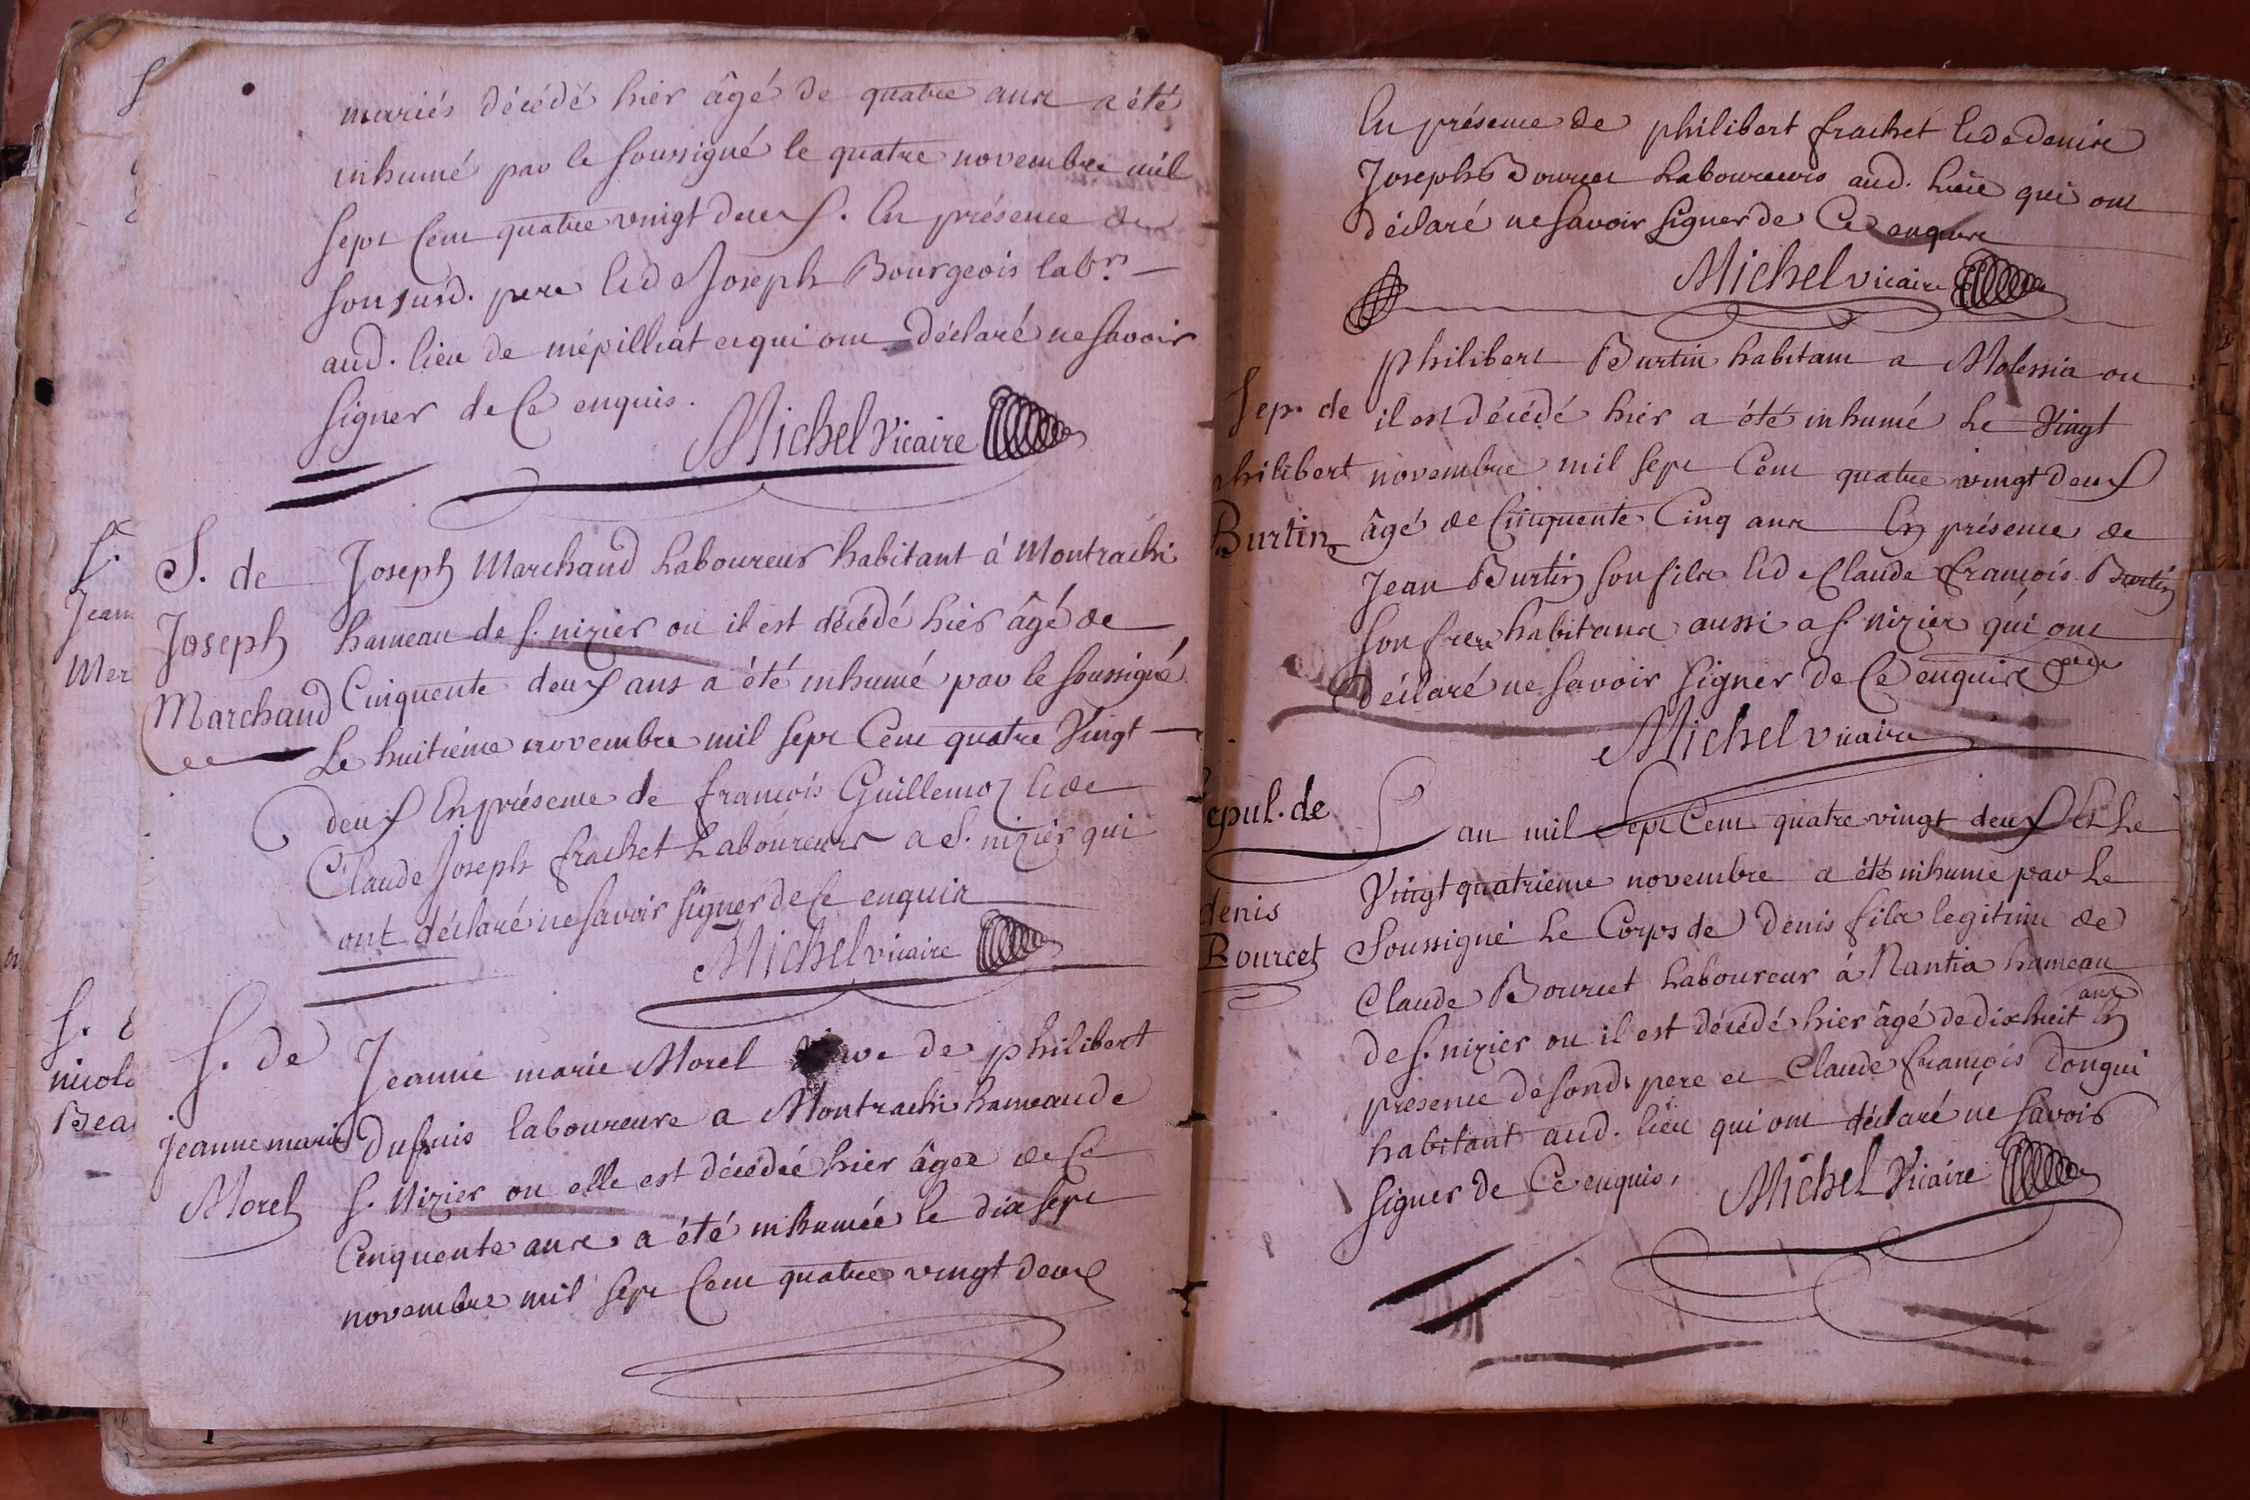 mariés décédé hier âgé de quatre ans a été
inhumé par le soussigné le quatre novembre mil
sept Cent quatre vingt deux. En présence de
son susd. pere et de Joseph Bourgeois labrs
aud. lieu de mépilliat et qui ont déclaré ne savoir
signer de Ce enquis.
Michel Vicaire
S. de
Joseph
Marchand
Joseph Marchand Laboureur habitant à Montrachi
hameau de S. nizier ou il est décédé hier âgé de
Cinquente deux ans a été inhumé par le soussigné
Le huitiéme novembre mil sept Cent quatre Vingt
deux En présence de françois Guillemoz et de
Claude Joseph frachet Laboureurs a S. nizier qui
ont déclaré ne savoir signer de Ce enquis
Michel vicaire
S. de
Jeanne marie
Morel
Jeanne marie Morel de philibert
Dufuis laboureure a Montrachi hameau de
S. Nizier ou elle est décédée hier âgée de
Cenquente ans a été inhumée le dix sept
novembre mil sept Cent quatre vingt deux
En présence de philibert frachet et de denis
Joseph Bourcet Laboureurs aud. lieu qui ont
déclaré ne savoir signer de Ce enquis
Michel vicaire
Sep. de
philibert
Burtin
philibert Burtin habitant a Molessia ou
il est décédé hier a été inhumé Le Vingt
novembre mil sept Cent quatre vingt deux
âgé de Cinquente Cinq ans En présence de
Jean Burtin son fils et de Claude françois Burtin
son frere habitans aussi a S. nizier qui ont
déclaré ne savoir signer de Ce enquis
Michel vicaire
Sepul. de
denis
Bourcet
L'an mil sept Cent quatre vingt deux et Le
Vingt quatrieme novembre a été inhumé par Le
Soussigné Le Corps de Denis fils legitime de
Claude Bourcet Laboureur à Nantia hameau
de S. nizier ou il est décédé hier âgé de dix huit ans En
présence de sond. pere et Claude françois Dongui
habitant aud. lieu qui ont déclaré ne savoir
signer de Ce enquis.
Michel Vicaire